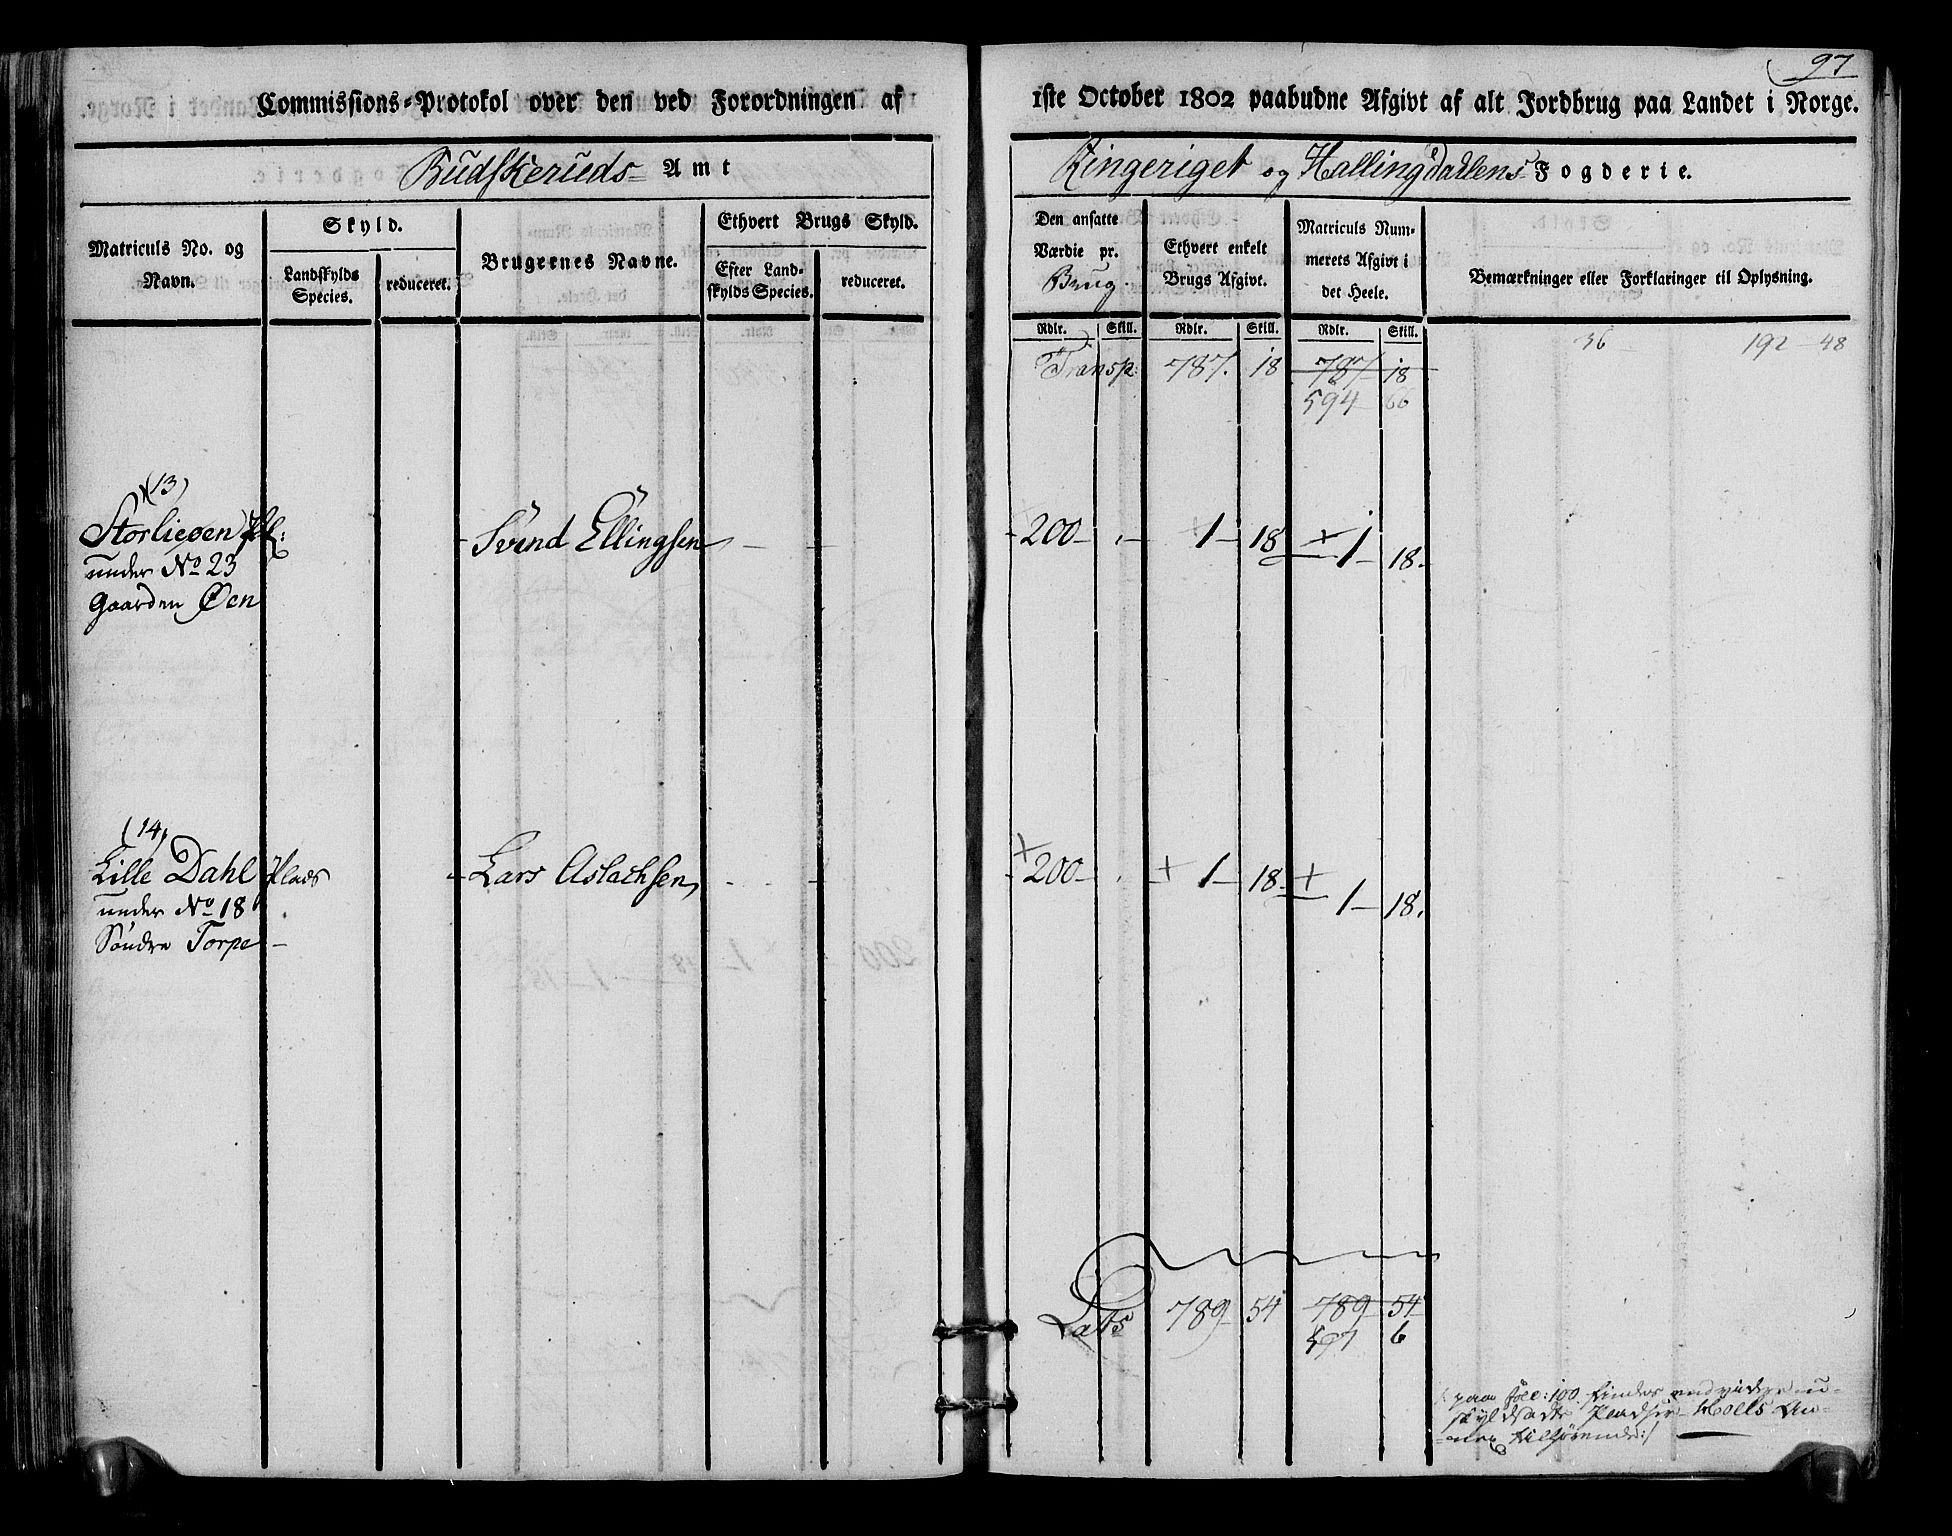 97
Commissions-Protokol over den ved Forordningen af
1ste October 1802 paabudne Afgivt af alt Jordbrug paa Landet i Norge.
Budskeruds Amt
Ringeriget og Hallingdahlens Fogderie.
Matriculs No. og
Navn.
Skyld.
Landskylds
Species.
reduceret.
Brugernes Navne.
Ethvert Brugs Skyld.
Efter Land-
skylds Species.
reduceret.
Den ansatte
Værdie pr.
Brug.
Ethvert enkelt
Brugs Afgivt.
Matriculs Num-
merets Afgivt i
det Heele.
Bemærkninger eller Forklaringer til Oplysning.
Rdlr. Skill. Rdlr. Skill. Rdlr. Skill.
36 192 - 48
Transp: 787. 18 787 18
594 66
(13)
Storlieøen Pl: Svend Ellingsen 200 1 18 1 18.
under No 23
Gaarden Øen
(14)
Lille Dahl Plads Lars Aslachsen 200 1 18 1 18.
under No 18
Søndre Torpe
Lats 789 54 789 54
597 6
paa Fol: 100 findes endvidere u-
skyldsatte Pladser Hols An-
nex tilhørende